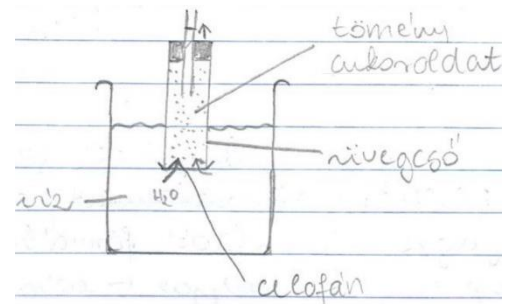 tömény
cukoroldat
üvegcső
víz
H₂O
celofán